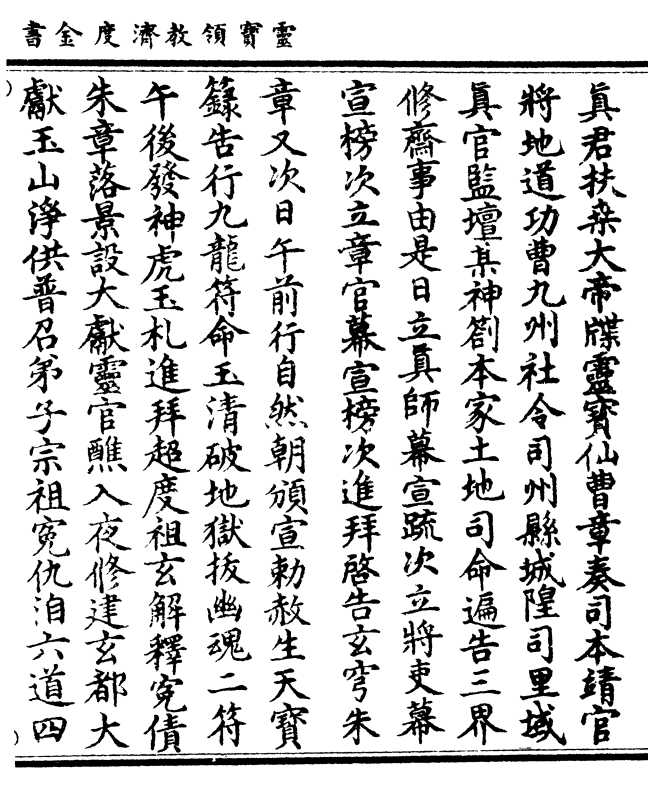 靈寶領教濟度金書
眞君扶桒大帝牒靈寶仙曹章奏司本靖官
將地道功曹九州社令司州縣城隍司里域
眞官監壇某神劄本家土地司命遍告三界
修齋事由是日立眞師幕宣䟽次立將吏幕
宣榜次立章官幕宣榜次進拜啓告玄穹朱
章又次日午前行自然朝頒宣勅赦生天寶
籙告行九龍符命玉清破地獄拔幽魂二符
午後發神虎玉札進拜超度祖玄解釋寃債
朱章落景設大獻靈官醮入夜修建玄都大
獻玉山淨供普召弟子宗祖寃仇洎六道四